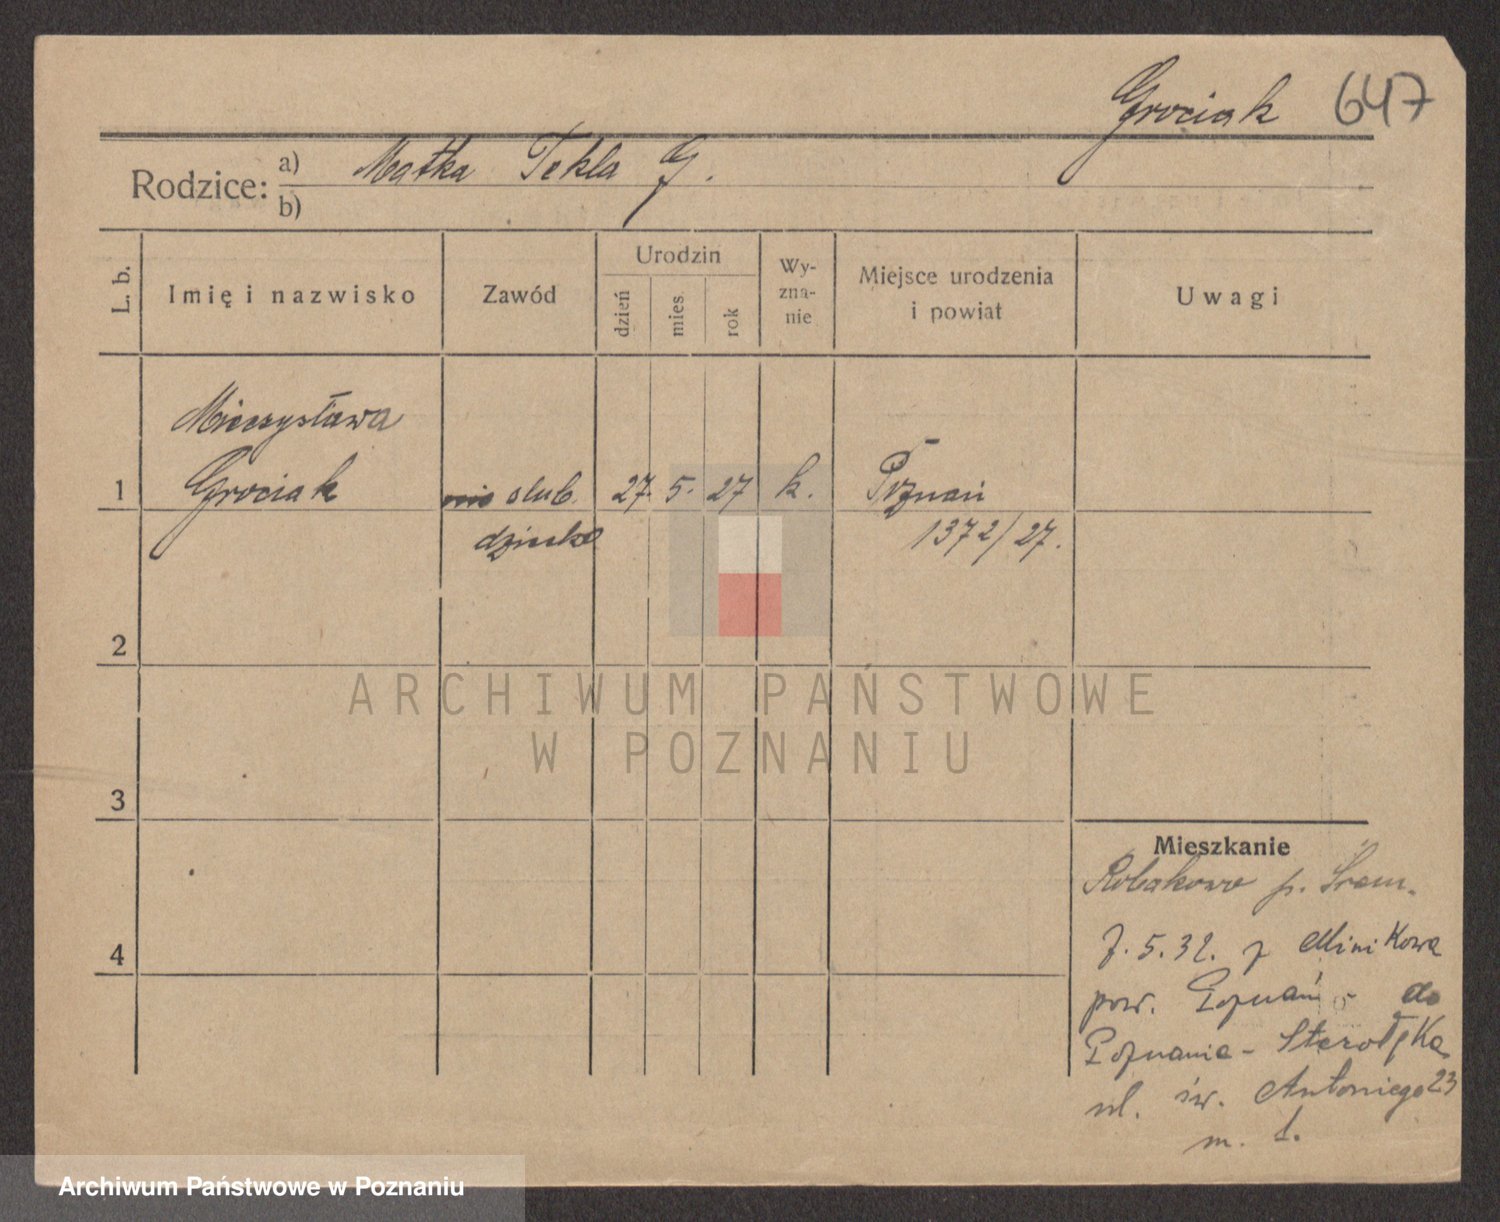 Grociak 647
Rodzice: a) Matka Tekla G.
b)
L. b.
Imię i nazwisko
Zawód
Urodzin
dzień
mies.
rok
Wy-
zna-
nie
Miejsce urodzenia
i powiat
Uwagi
Mieczysława
1 Grociak slub. 27. 5. 27 k. Poznań
dziecko 1372/27.
2
3
4
ARCHIWUM PAŃSTWOWE
W POZNANIU
Mieszkanie
Robakowo p. Śrem.
7.5.32. z Minikowa
pow. Poznań - do
Poznania - Starołęka
ul. św. Antoniego 23
m. 1.
Archiwum Państwowe w Poznaniu